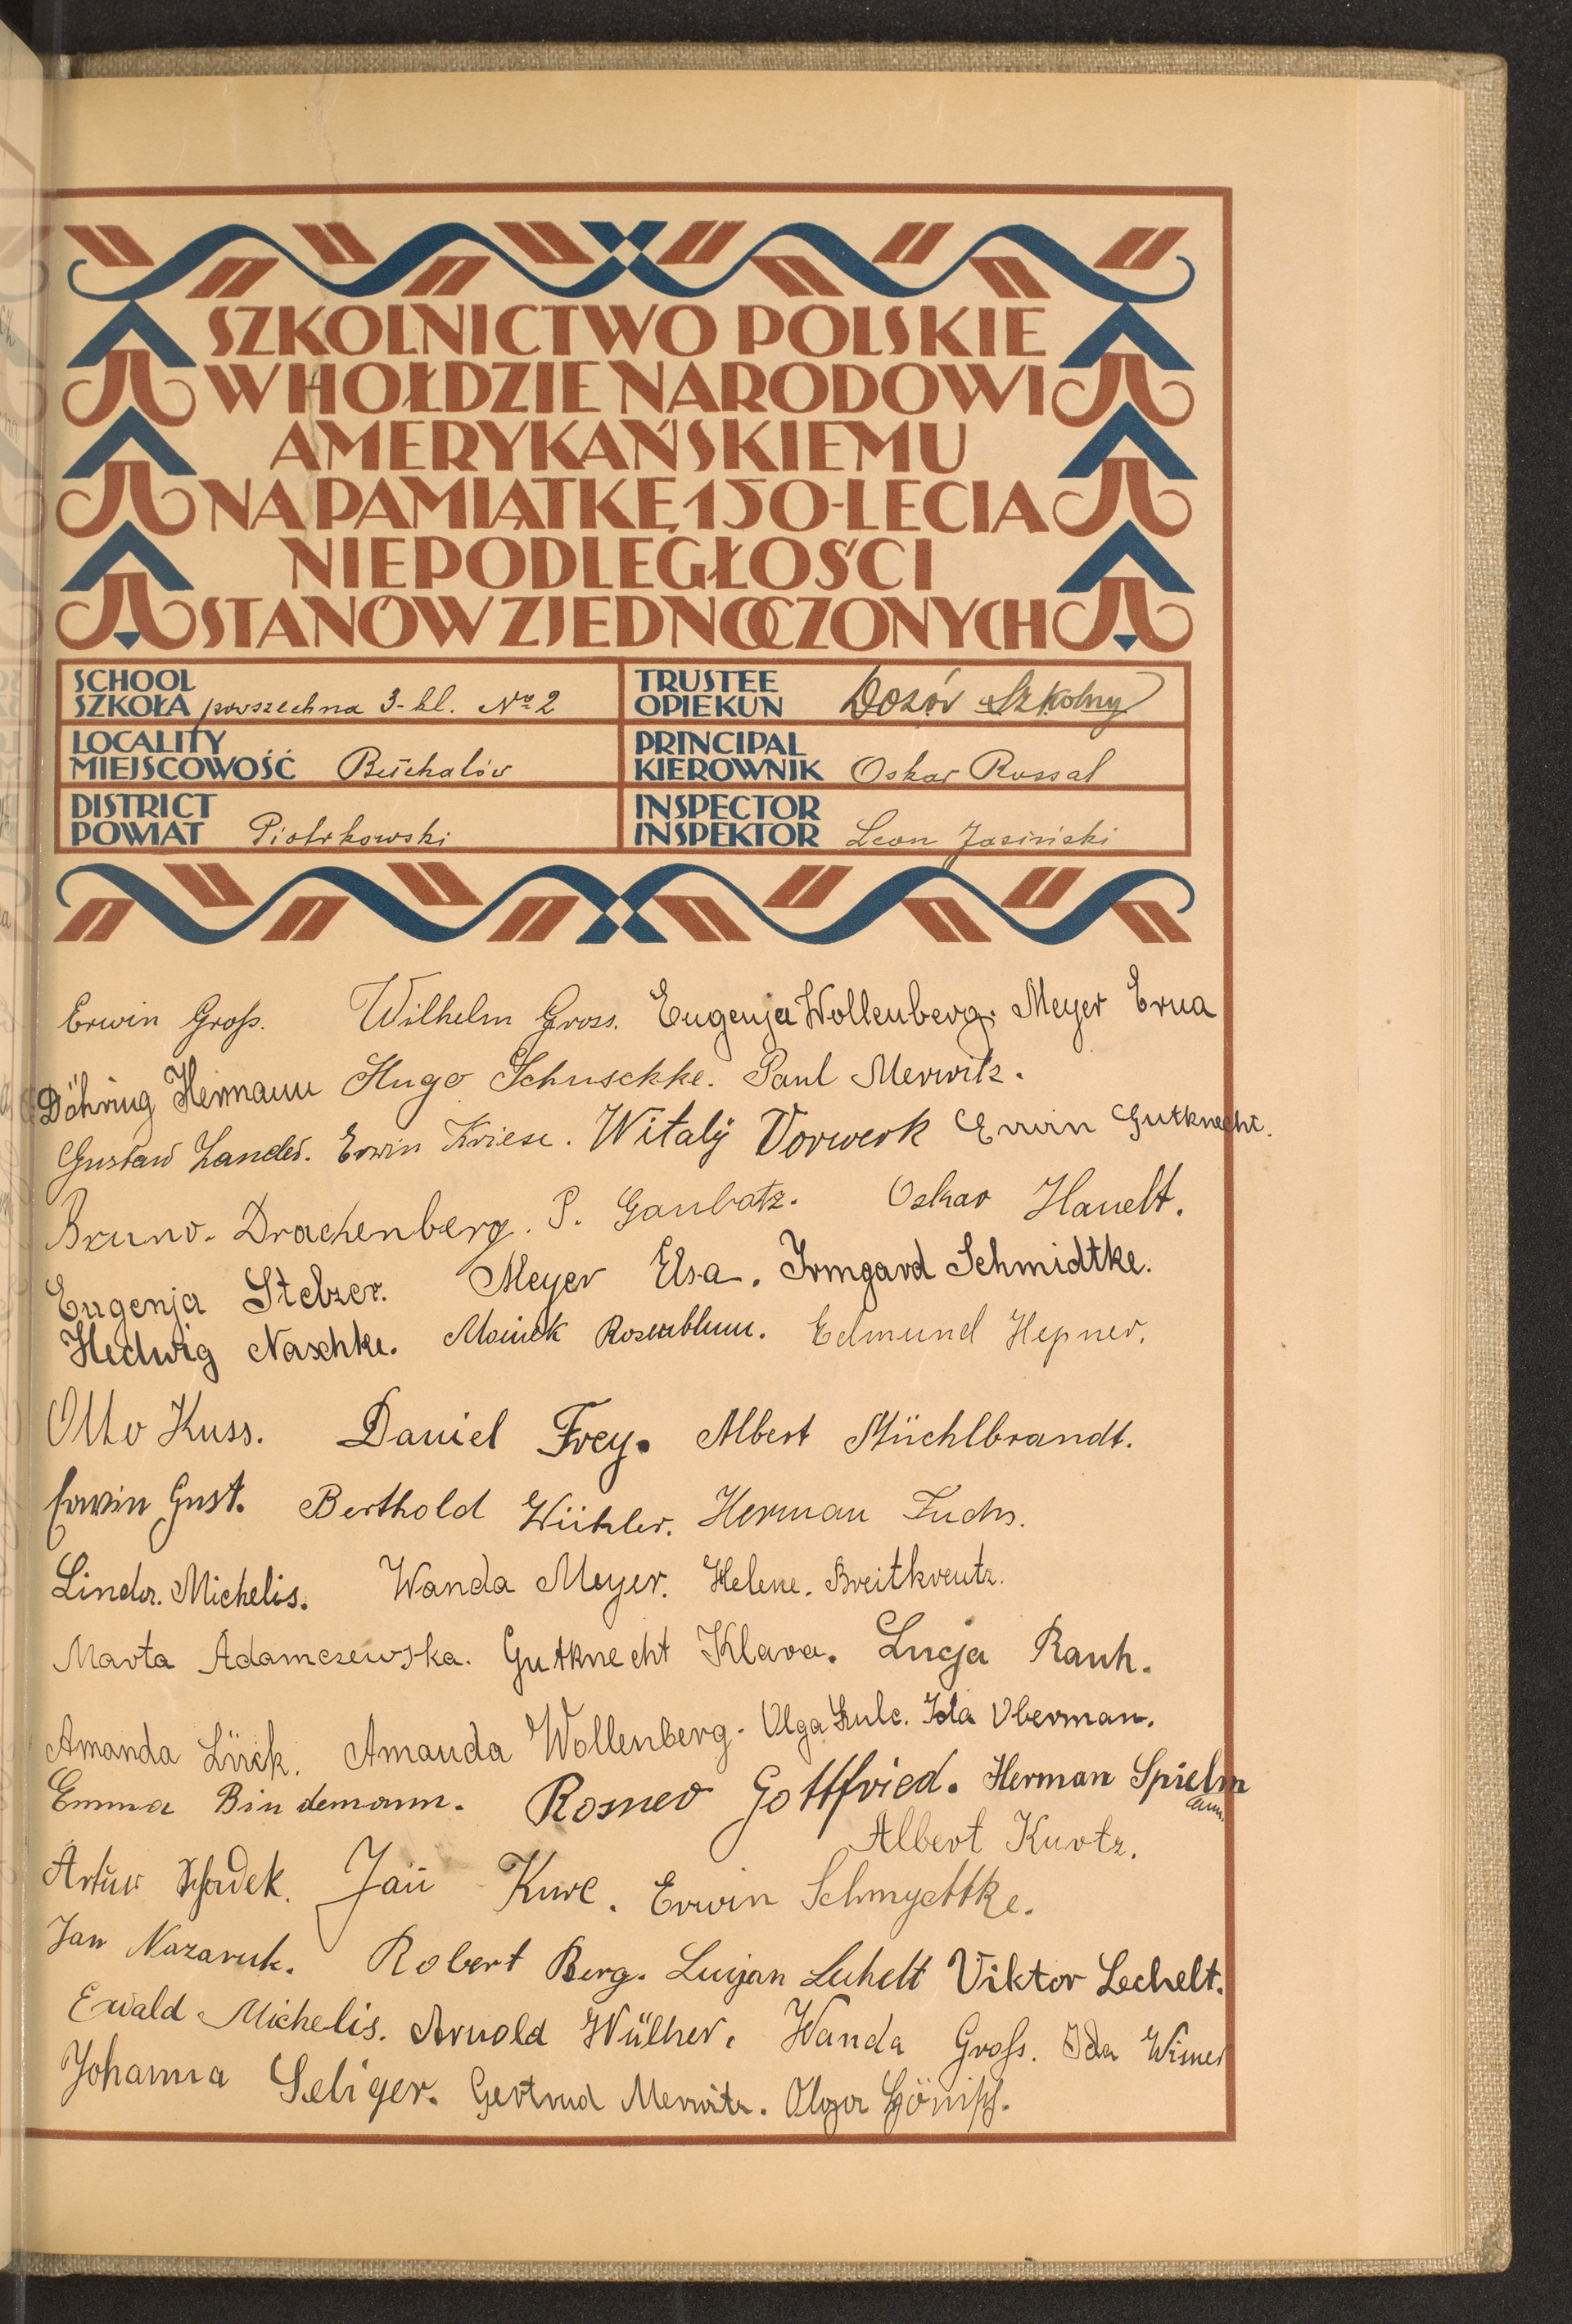 SZKOLNICTWO POLSKIE
W HOŁDZIE NARODOWI
AMERYKAŃSKIEMU
NA PAMIĄTKĘ 150-LECIA
NIEPODLEGŁOŚCI
STANÓW ZJEDNOCZONYCH
SCHOOL
SZKOŁA powszechna 3-kl. № 2
TRUSTEE
OPIEKUN Dozór Szkolny
LOCALITY
MIEJSCOWOŚĆ
PRINCIPAL
KIEROWNIK Oskar Rossal
DISTRICT
POWIAT Piotrkowski
INSPECTOR
INSPEKTOR Leon Jasiński
Erwin Groß. Wilhelm Gross. Eugenja Wollenberg. Meyer Erna
Döhring Hermann Hugo Schuschke. Paul Merwitz.
Gustaw Lander. Erwin Kriese. Witalij Vorwerk Erwin Gutknecht.
Bruno. Drachenberg. P. Gaubatz. Oskar Hauelt.
Eugenja Stelzer. Meyer Elsa. Irmgard Schmidtke.
Hedwig Naschke. Moniek Rosenblum. Edmund Hepner.
Otto Kuss. Daniel Frey. Albert Müchlbrandt.
Erwin Gust. Berthold Herman Fuchs.
Linda. Michelis. Wanda Meyer. Helene. Breitkreutz.
Marta Adamczewska. Gutknecht Klara. Lucja Rauh.
Amanda Lück. Amanda Wollenberg. Olga Szulc. Ida Oberman.
Emma Bindemann. Rosner Gottfried. Herman Spielmann.
Albert Kurtz.
Artur Jan Kurc. Erwin Schmydtke.
Jan Nazaruk. Robert Berg. Lucjan Lechelt Viktor Lechelt.
Ewald Michelis. Arnold Wülher. Wanda Groß. Ida Wisner
Johanna Seliger. Gertrud Merwitz. Olga